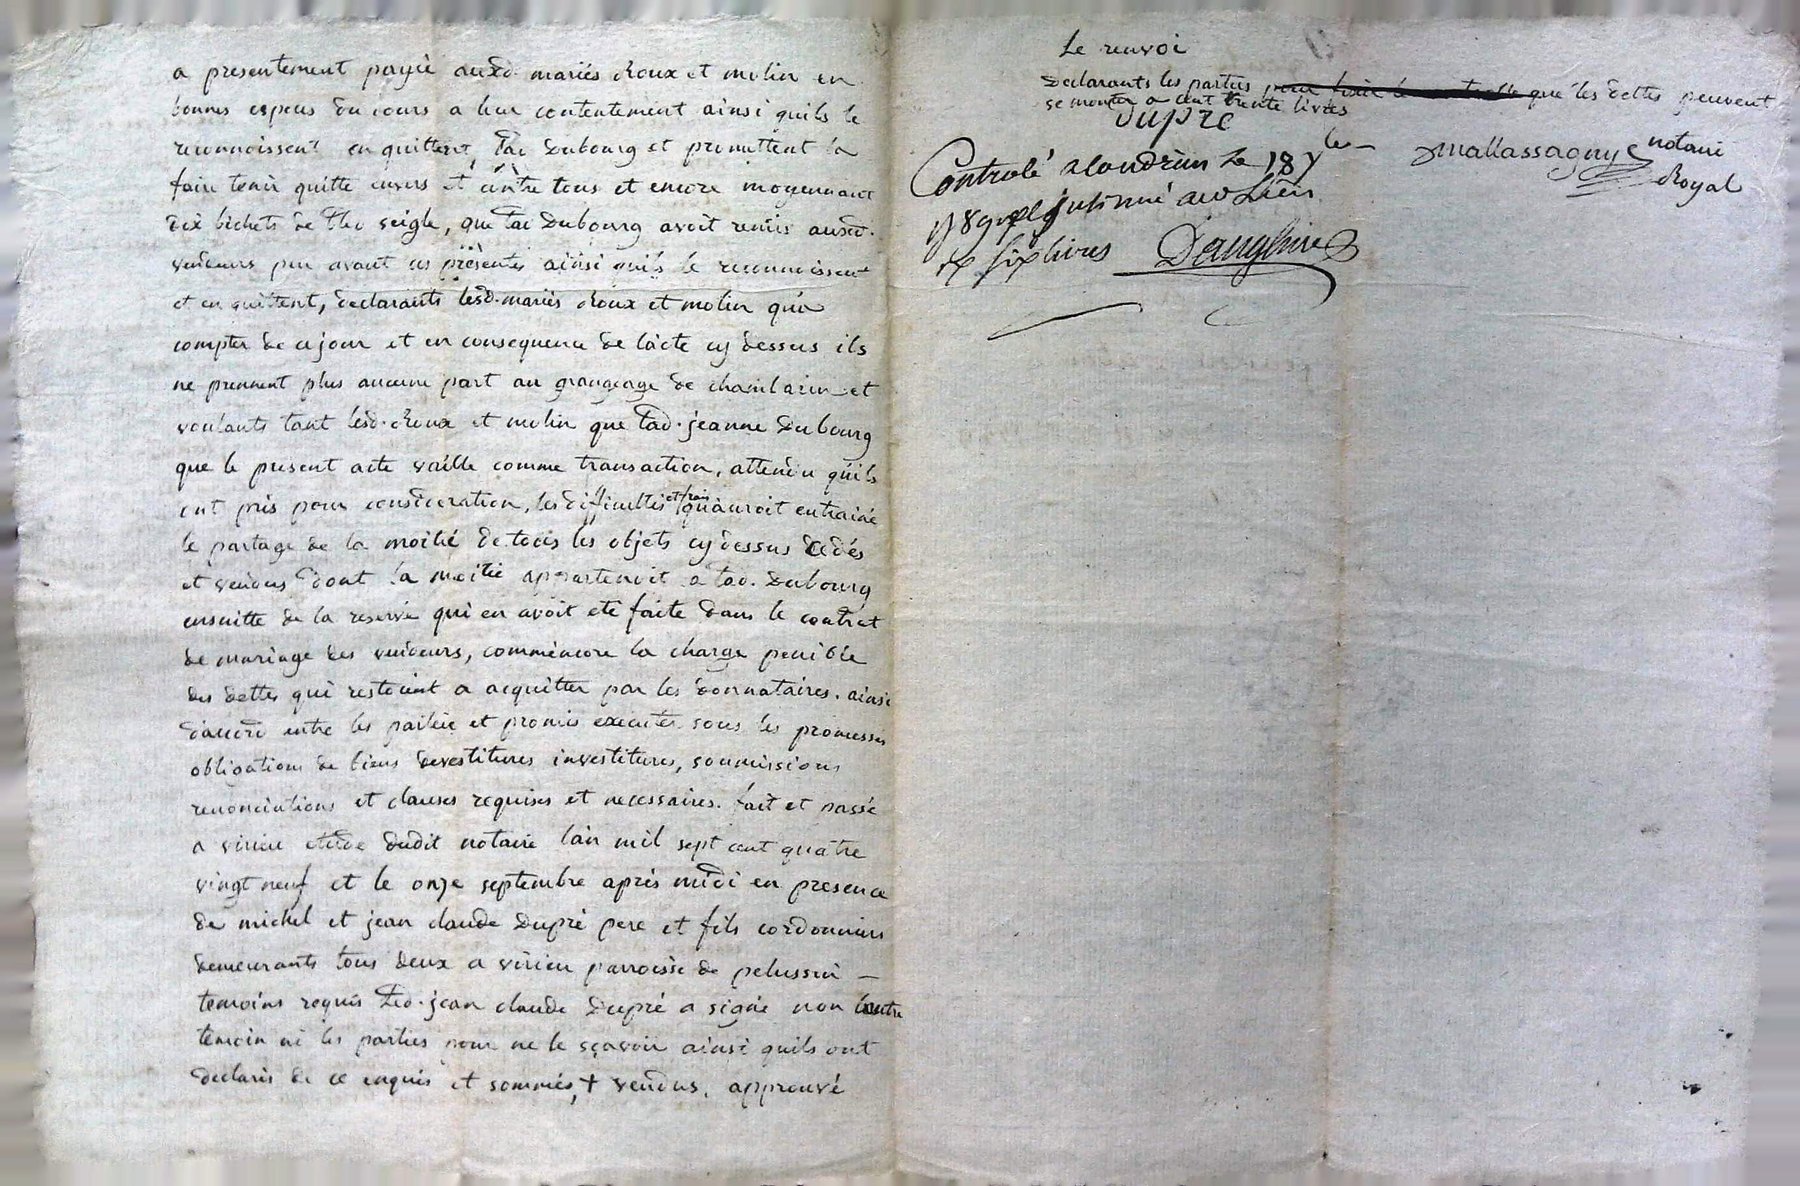 a presentement payée auxd. mariés Roux et molin en
bonnes especes du cours a leur contentement ainsi quils le
reconnoissent en quittent, lad Dubourg et promettent la
faire tenir quitte envers et contre tous et encore moyennant
dix bichets de bled seigle, que lad Dubourg avoit remis auxd.
vendeurs peu avant ces presentes ainsi quils le reconnoissent
et en quittent, declarants lesd. mariés Roux et molin qua
compter de ce jour et en consequence de lacte cy dessus ils
ne prennent plus aucune part au grangeage de chantarin et
voulants tant lesd. Roux et molin que lad. jeanne Dubourg
que le present acte vaille comme transaction, attendu quils
ont pris pour consideration, les difficultés et frais quauroit entrainé
le partage de la moitié de tous les objets cy dessus cedés
et vendus dont la moitié appartenoit a lad. Dubourg
ensuitte de la reserve qui en avoit eté faite dans le contrat
de mariage des vendeurs, comme encore la charge penible
des dettes qui restoient a acquitter par les donnataires. ainsi
daccord entre les parties et promis executer sous les promesses
obligations de biens devestitures investitures, soumissions
renonciations et clauses requises et necessaires. fait et passé
a virieu etude dudit notaire lan mil sept cent quatre
vingt neuf et le onze septembre après midi en presence
de michel et jean claude Dupré pere et fils cordonniers
demeurants tous deux a virieu parroisse de pelussin —
temoins requis led. jean claude Dupré a signé non lautre
temoin ni les parties pour ne le sçavoir ainsi quils ont
declarés de ce enquis et sommés, + vendus. approuvé
Le renvoi
Declarants les parties que les dettes peuvent
se monter a cent trente livres
Dupré
mallassagny notaire
Royal
Controlé a Condrieu Le 18 7bre
1789
six livres